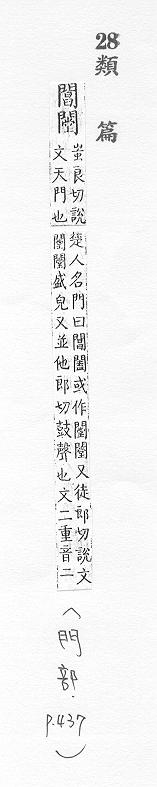 28
類篇
閶闛
蚩良切說
文天門也
楚人名門曰閶闔或作闛闛又徒郎切說文
闛闛盛皃又並他郎切鼓聲也文二重音二
(門部.
p.437)